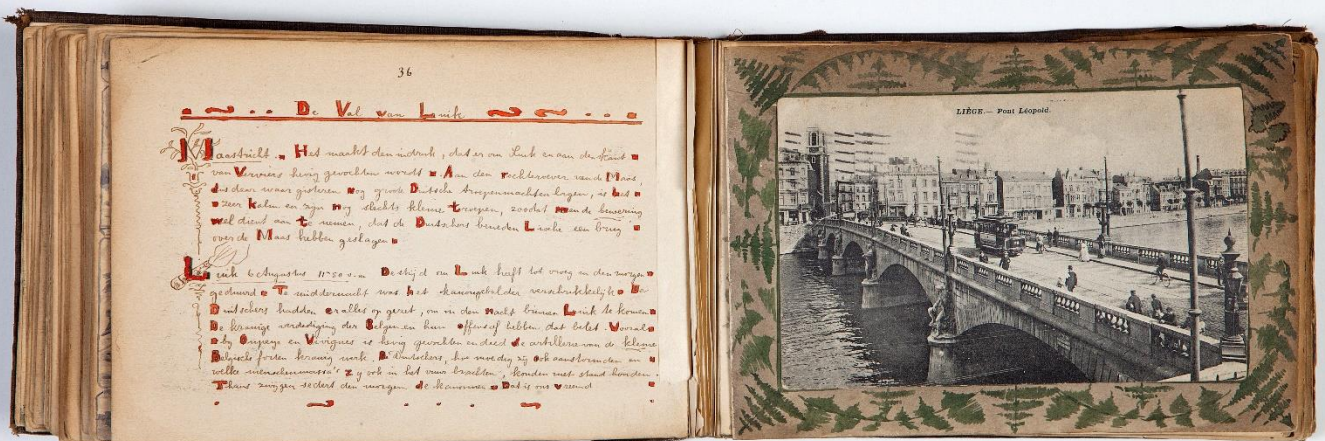 36
De Val van Luik
Maastricht. Het maakt den indruk, dat er om Luik en aan den kant
van Verviers hevig gevochten wordt. Aan den rechteroever van de Maas,
dus daar waar gisteren nog groote Duitsche troepenmachten lagen, is het
zeer kalm en zijn nog slechts kleine troepen, zoodat men de bewering
wel dient aan te nemen, dat de Duitschers beneden Luik een brug
over de Maas hebben geslagen
Luik 6 Augustus 11.50 v.m. De strijd om Luik heeft tot vroeg in den morgen
geduurd. Te middernacht was het kanongebulder verschrikkelijk. De
Duitschers hadden er alles op gezet, om in den nacht binnen Luik te komen
De kranige verdediging der Belgen en hun offensief hebben dat belet. Vooral
bij en Vivegnis is hevig gevochten en deed de artillerie van de kleine
Belgische forten kranig werk. De Duitschers, hoe moedig zij ook aanstormden en
welke menschenmassa's zij ook in het vuur brachten, konden niet stand houden.
Thans zwijgen sedert den morgen de kanonnen. Dat is ons vreemd
LIÈGE. — Pont Léopold.